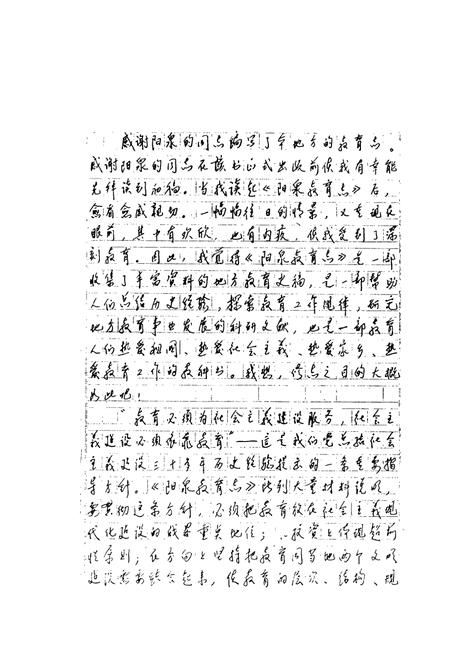 感谢阳泉的同志编写了本地方的教育志。
感谢阳泉的同志在该书正式出版前使我有幸能
先拜读到初稿。当我读起《阳泉教育志》后,
愈看愈感亲切。一幅幅往日的情景,又重现在
眼前,其中有欢欣,也有内疚,使我受到了深
刻教育。因此,我觉得《阳泉教育志》是一部
收集了丰富资料的地方教育史稿,是一部帮助
人们总结历史经验,探索教育工作规律,研究
地方教育事业发展的科研文献,也是一部教育
人们热爱祖国、热爱社会主义、热爱家乡、热
爱教育工作的教科书。我想,修志之目的大概
如此吧!
“教育必须为社会主义建设服务,社会主
义建设必须依靠教育”——这是我们党总结社会
主义建设三十多年历史经验提出的一条重要指
导方针。《阳泉教育志》特别大量材料说明,
要贯彻这条方针,必须把教育放在社会主义现
代化建设的战略重点地位;投资上体现超前
性原则;在方向上坚持把教育同当地两个文明
建设需要结合起来,使教育的层次、结构、规